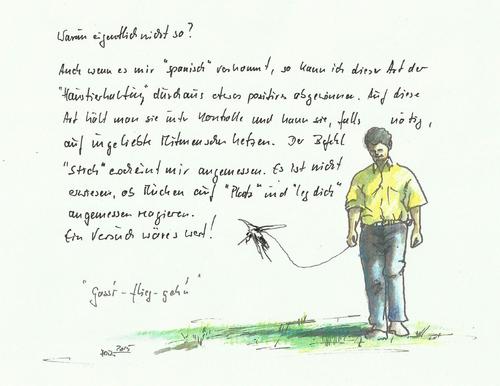 Warum eigentlich nicht so?
Auch wenn es mir "spanisch" vorkommt, so kann ich dieser Art der
"Haustierhaltung" durchaus etwas positives abgewinnen. Auf diese
Art hält man sie unter Kontrolle und kann sie, falls nötig,
auf ungeliebte Mitmenschen hetzen. Der Befehl
"Stech" erscheint mir angemessen. Es ist nicht
erwiesen, ob Mücken auf "Platz" und "leg dich"
angemessen reagieren.
Ein Versuch wäre es wert!
"Gassi-flieg-geh'n"
2015